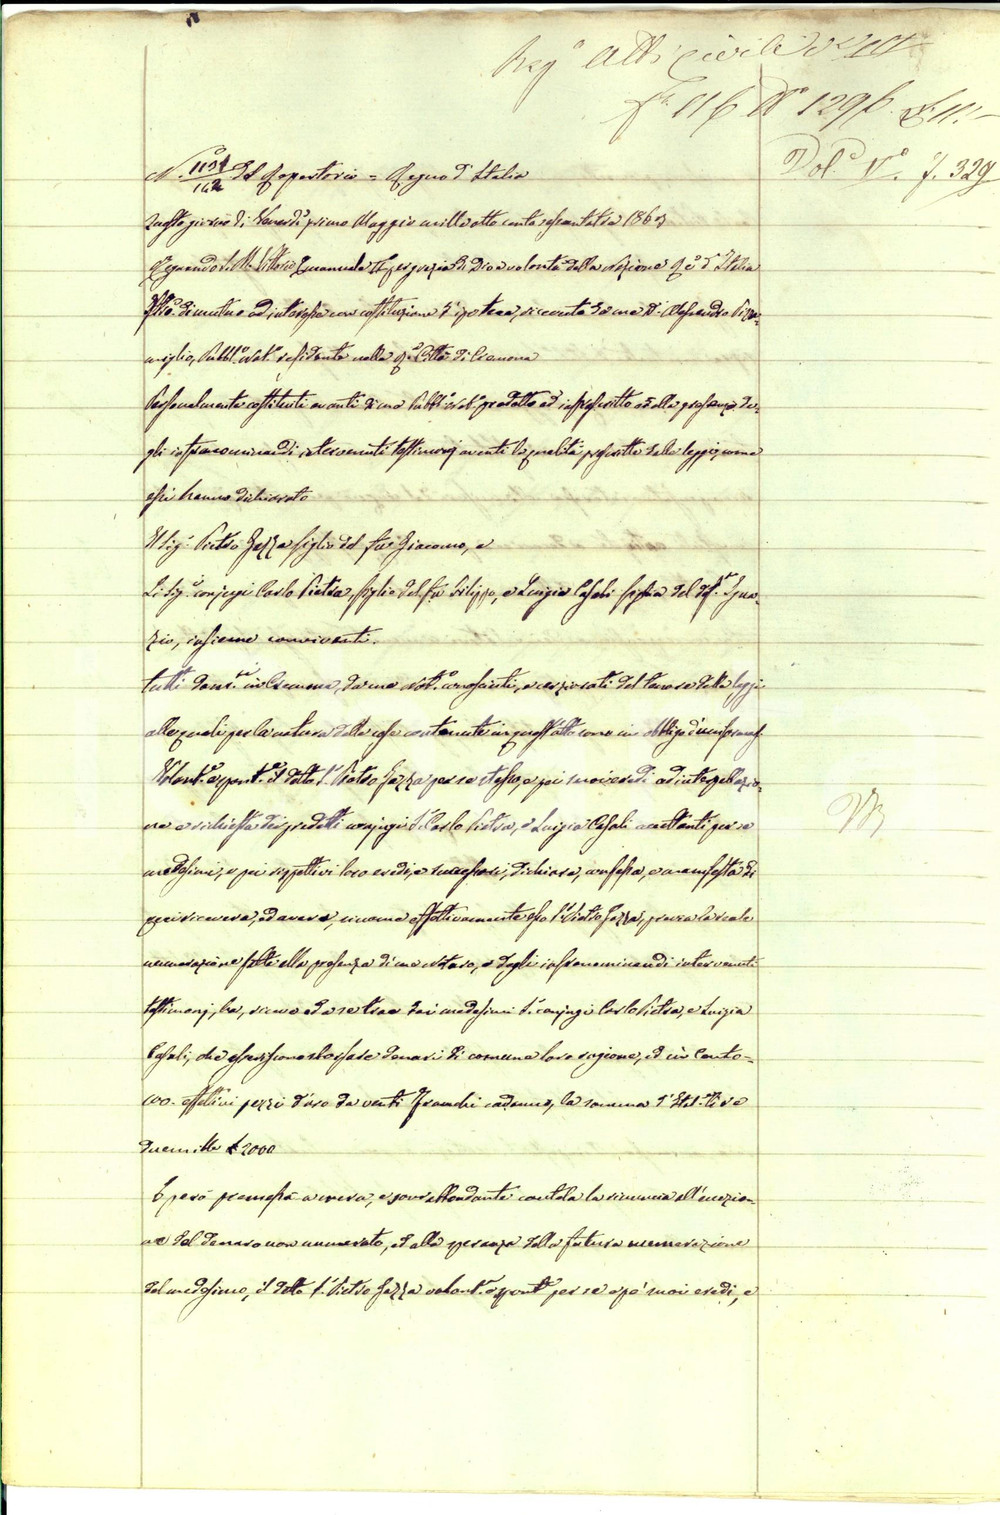 Reg.º Atti Civili Vol.
f. 116 Nº 1296
Vol. Vº. f. 329
Nº 1134/162 del Repertorio = Regno d'Italia
Questo giorno di Venerdì primo Maggio mille otto cento sessantatre 1863
Regnando S. M. Vittorio Emanuele II per grazia di Dio e volontà della Nazione Re d'Italia
di mutuo ad interesse con costituzione d'ipoteca, ricevuto da me Dr. Alessandro
Pubb.º Not.º residente nella Rª Città di Cremona
Personalmente costituiti avanti di me Pubb.º Not.º predetto ed infrascritto ed alla presenza de-
gli infranominandi intervenuti testimonj aventi le qualità prescritte dalla legge, come
essi hanno dichiarato
Il Sig.r Pietro Gazza figlio del fu Giacomo, e
Li Sig.i conjugi Carlo Pietra, figlio del fu Filippo, e Luigia Casali figlia del Igna-
zio, insieme conviventi.
tutti dom.ti in Cremona, da me Not.º conosciuti, e cerziorati del tenore delle leggi
alle quali per la natura delle cose contenute in quest'atto sono in obbligo d'uniformarsi
Volont.e e spont.e il detto S.r Pietro Gazza per se stesso, e pei suoi eredi ad interpellazio-
ne e richiesta dei predetti conjugi S.i Carlo Pietra, e Luigia Casali accettanti per se
medesimi, e pei rispettivi loro eredi, e successori, dichiara, confessa, e manifesta di
quì ricevere, ed avere, siccome effettivamente esso S.r Pietro Gazza, previa la reale
numerazione fatta alla presenza di me Notaro, e degli infranominandi intervenuti
testimonj, ha, riceve ed a se trae dai medesimi S.i conjugi Carlo Pietra, e Luigia
Casali, che asseriscono lo stesso denaro di comune loro ragione, ed in Cento=
100. effettivi pezzi d'oro da venti Franchi cadauno, la somma d'Ital. Lire
duemille £ 2000
E però premessa a vera, e sovrabbondante cautela la rinuncia all'eccezio-
ne del denaro non numerato, ed alla speranza della futura numerazione
del medesimo, il detto S.r Pietro Gazza volont.e e spont.e per se e pe' suoi eredi, e